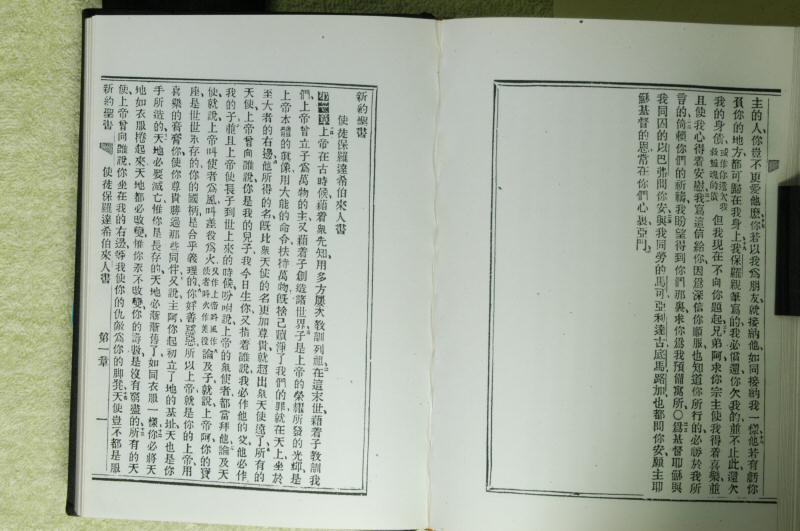 主的人、你豈不更愛他麼、你若以我爲朋友、就接納他、如同接納我一樣、他若有虧
負你的地方、都可歸在我身上、我保羅親筆寫的、我必償還、你欠我的並不止此、還欠
我的身價、或作你還欠我救靈魂的債但我現在不向你題起、兄弟阿、求你宗主使我得着喜樂、並
且使我心得着安慰、我寫這信給你、因爲深信你順服、也知道你所行的必勝於我所
言的、倚賴你們的祈禱、我盼望得到你們那裏、求你爲我預備寓所、〇爲基督耶穌與
我同囚的以巴弗問你安、與我同勞的馬可亞利達古底馬路加也都問你安、願主耶
穌基督的恩常在你們心裏、亞門、
新約聖書
使徒保羅達希伯來人書
第一章上帝在古時候、藉着衆先知、用多方屢次教訓列祖、在這末世、藉着子教訓我
們、上帝曾立子爲萬物的主、又藉着子創造諸世界、子是上帝的榮耀所發的光輝、是
上帝本體的眞像、用大能的命令扶持萬物、旣捨己贖淨了我們的罪、就在天上坐於
至大者的右邊、他所得的名、旣比衆天使的名更加尊貴、就超出衆天使遠了、所有的
天使、上帝曾向誰說、你是我的兒子、我今日生你、又指着誰說、我必作他的父、他必作
我的子、並且上帝使長子到世上來的時候、吩咐說、上帝的衆使者都當拜他、論及天
使、就說、上帝叫使者爲風、叫差役爲火、又作上帝以風作使者以火作差役論及子、就說、上帝阿、你的寶
座是世世永存的、你的國柄是合乎義理的、你好善惡惡、所以上帝就是你的上帝、用
喜樂的膏膏你、使你尊貴勝過那些同伴、又說、主阿、你起初立了地的基址、天也是你
手所造的、天地必要滅亡、惟你是長存的、天地必漸漸舊了、如同衣服一樣、你必將天
地如衣服捲起來、天地都必改變、惟你永不改變、你的壽數是沒有窮盡的、所有的天
使、上帝曾向誰說、你坐在我的右邊、等我使你的仇敵爲你的脚凳、天使豈不都是服
新約聖書 使徒保羅達希伯來人書 第一章 一